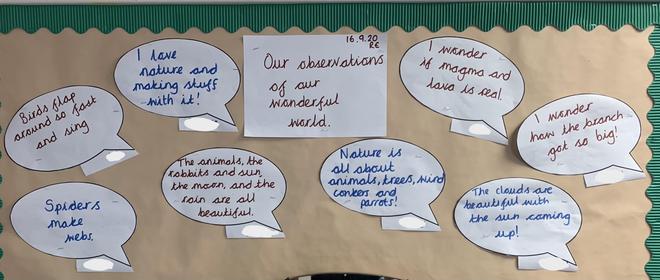 16.9.20
RE
Our observations
of our
wonderful
world.
I love
nature and
making stuff
with it!
I wonder
if magma and
lava is real.
Birds flap
around so fast
and sing
I wonder
how the branch
got so big!
The animals, the
rabbits and sun,
the moon, and the
rain are all
beautiful.
Nature is
all about
animals, trees, wind
conkers and
parrots!
Spiders
make
webs.
The clouds are
beautiful with
the sun coming
up!